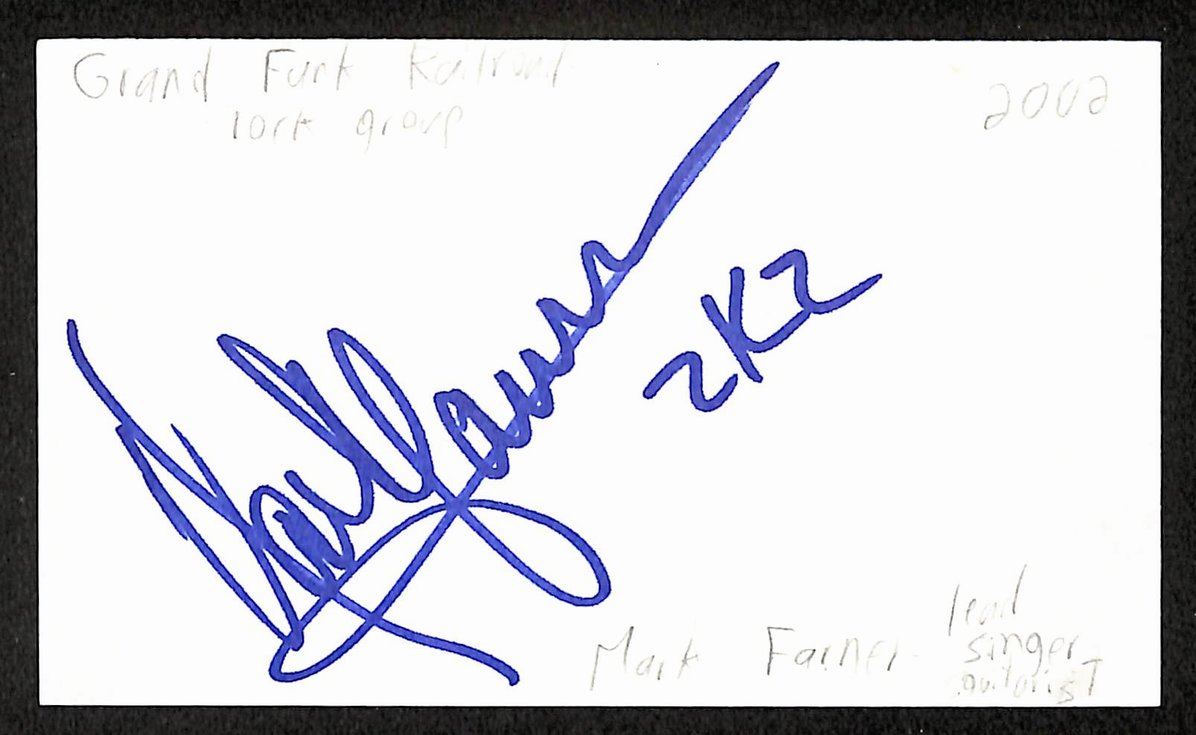 Grand Funk Railroad
rock group
2002
Mark Farner
2K2
Mark Farner - lead
singer
guitarist